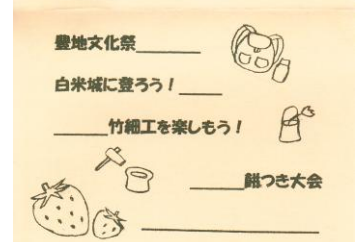 豊地文化祭______
白米城に登ろう！____
_____竹細工を楽しもう！
_____餅つき大会